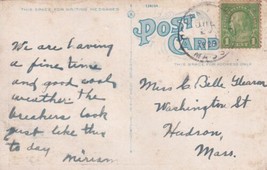 THIS SPACE FOR WRITING MESSAGES
POST
CARD
THIS SPACE FOR ADDRESS ONLY
We are having
a fine time
and good cool
weather the
breakers look
just like this
to day
Miriam
Miss C Belle Glearson
Washington St
Hudson,
Mass.